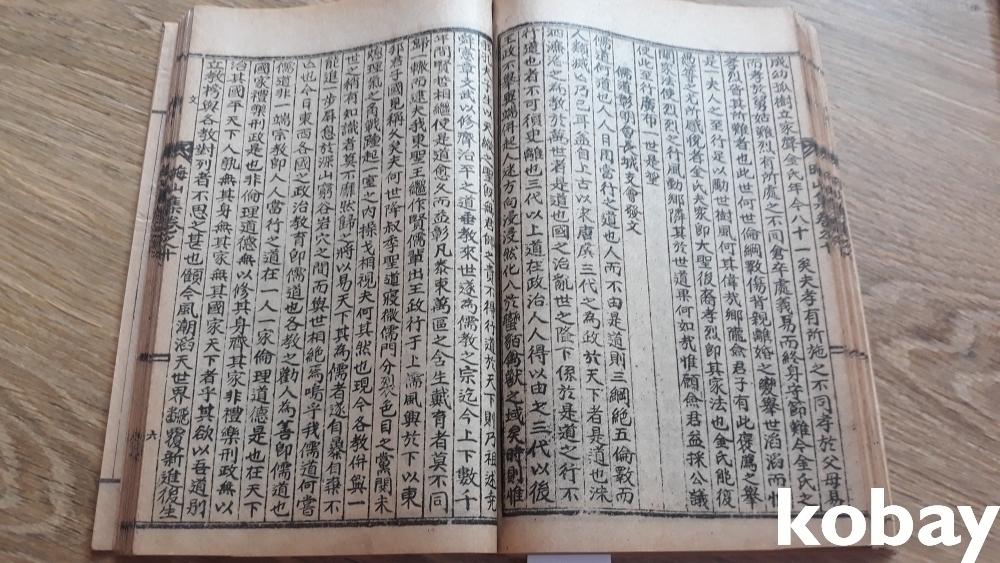 成幼孤樹立家聲金氏年今八十一矣夫孝有所施之不同孝於父母易
而孝於舅姑難烈有所處之不同倉卒處義易而終身守節難今金氏之
孝烈皆其所難者也此世何世倫綱斁傷背親離婚之變擧世滔滔而惟
是一夫人之至行足以勵世樹風何其偉哉鄕隴僉君子有此褒薦之擧
爲善之尤所感悅者金氏夫家卽大聖後裔孝烈卽其家法也金氏能復
使烈烈之行風動鄕隣其於世道果何如哉惟願僉君益採公議
使此至行廣布一世是望
儒道彰明會長城支會發文
儒道何道也人人日用當行之道也人而不由是道則三綱絶五倫斁而
人類滅乃已耳盖自上古以來唐虞三代之爲政於天下者是道也洙
泗濂洛之爲敎於萬世者是道也國之治亂世之隆下係於是道之行不
行道也者不可須臾離也三代以上道在政治人人得以由之三代以後
政不擧異端倂起人迷方向浸浸然化入於蠻貊禽獸之域矣時則惟
夫子生以天縱之聖旣無君師之責不得行道於天下則乃祖述堯
舜憲章文武以修齊治平之道垂敎來世遂爲儒敎之宗迄今上下數千
年間賢哲相繼使是道愈久而益彰凡泰東萬區之含生戴育者莫不同
歸一轍而逮夫我東聖王繼作賢儒輩出王政行于上儒風興於下以東
邦君子國見稱久矣夫何世降叔季聖道寢微儒門分裂色目之黨閧未
息湖洛之角戟隆起一室之內操戈相視夫何其然也現今各敎倂興一
世之稍有知識者莫不靡然歸之將以易天下其爲儒者遂自暴自棄不
能進一步屛息於深山窮谷岩穴之間而與世相絶焉嗚乎我儒道何嘗
凶也今日東西各國之政治敎育卽儒道也各敎之勸人爲善卽儒道也
儒道非一端宗敎卽人人當行之道在一人一家倫理道德是也在天下
國家禮樂刑政是也非倫理道德無以修其身齊其家非禮樂刑政無以
治其國平天下人孰無其身無其家無其國家天下者乎其欲以吾道別
立敎務與各敎對列者不思之甚也顧今風潮滔天世界飜覆新進後生
文
梅山集卷之十
六
kobay